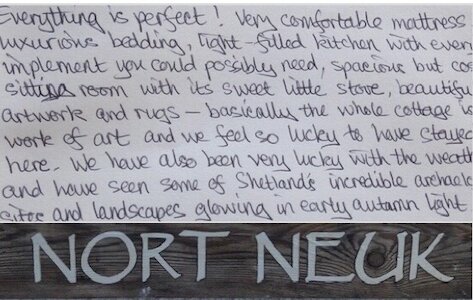 Everything is perfect! Very comfortable mattress
luxurious bedding, light-filled kitchen with ever
implement you could possibly need, spacious but cos
sitting room with its sweet little stove, beautifu
artwork and rugs – basically the whole cottage
work of art and we feel so lucky to have staye
here. We have also been very lucky with the weath
and have seen some of Shetland's incredible archaeol
sites and landscapes glowing in early autumn light
NORT NEUK